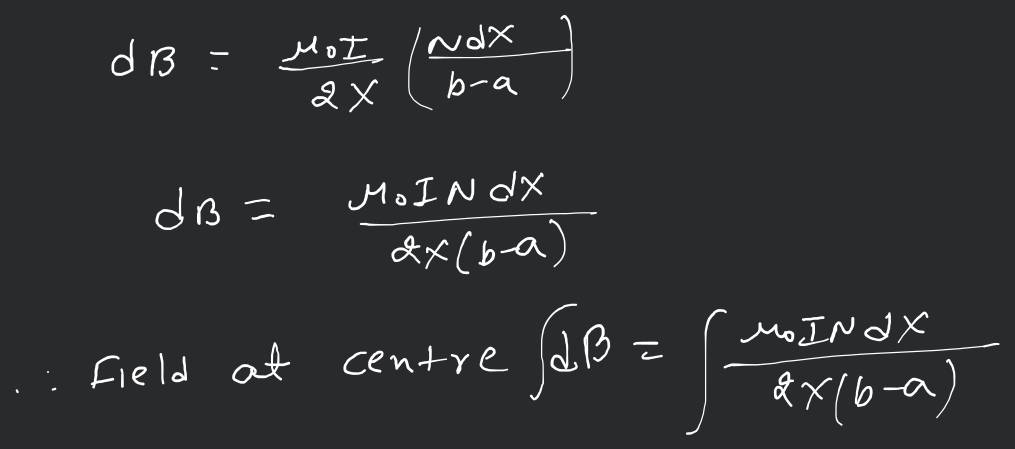 dB = μ₀I/2x (Ndx/b-a)
dB = μ₀INdx/2x(b-a)
∴ Field at centre ∫dB = ∫ μ₀INdx/2x(b-a)